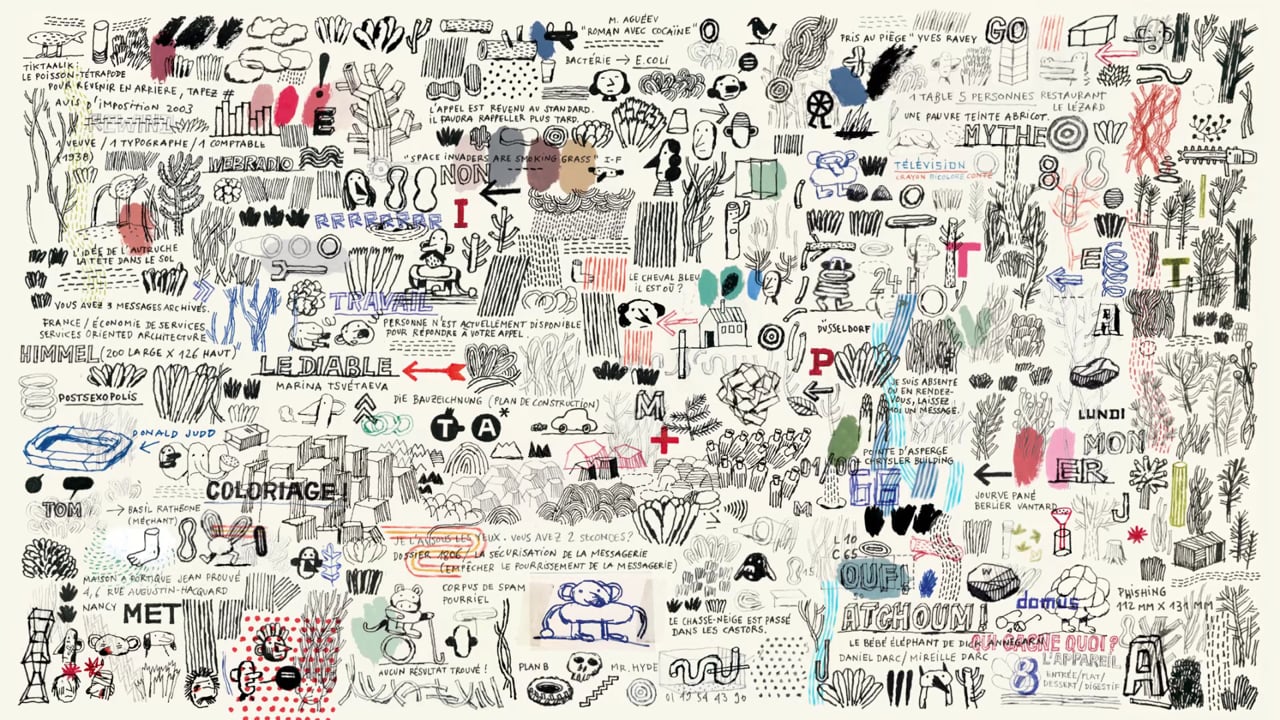 M. AGUÉEV
"ROMAN AVEC COCAÏNE"
BACTÉRIE → E.COLI
PRIS AU PIÈGE" YVES RAVEY
GO
TIKTAALIK:
LE POISSON-TÉTRAPODE
POUR REVENIR EN ARRIÈRE, TAPEZ #
AVIS D'IMPOSITION 2003
REWIND
1 VEUVE / 1 TYPOGRAPHE / 1 COMPTABLE
(1938)
WEBRADIO
E
L'APPEL EST REVENU AU STANDARD.
IL FAUDRA RAPPELLER PLUS TARD.
1 TABLE 5 PERSONNES RESTAURANT
LE LÉZARD
UNE PAUVRE TEINTE ABRICOT.
MYTHE
"SPACE INVADERS ARE SMOKING GRASS" I-F
NON
I
RRRRRRRR
TÉLÉVISION
CRAYON BICOLORE CONTÉ
8
L'IDÉE DE L'AUTRUCHE
LA TÊTE DANS LE SOL
T
E
T
24
LE CHEVAL BLEU
IL EST OÙ ?
VOUS AVEZ 3 MESSAGES ARCHIVÉS.
TRAVAIL
FRANCE / ÉCONOMIE DE SERVICES
SERVICES ORIENTED ARCHITECTURE
PERSONNE N'EST ACTUELLEMENT DISPONIBLE
POUR RÉPONDRE À VOTRE APPEL.
DÜSSELDORF
A
HIMMEL (200 LARGE X 126 HAUT)
LE DIABLE
MARINA TSVÉTAEVA
P
POSTSEXOPOLIS
DIE BAUZEICHNUNG (PLAN DE CONSTRUCTION)
M
JE SUIS ABSENTE
OU EN RENDEZ-
VOUS, LAISSEZ
MOI UN MESSAGE.
TA*
+
LUNDI
MON
ER
DONALD JUDD
POINTE D'ASPERGE
CHRYSLER BUILDING
COLORIAGE!
TOM
→ BASIL RATHBONE
(MÉCHANT)
M
JOURVE PANÉ
BERLIER VANTARD
J
VOUS AVEZ 2 SECONDES?
DOSSIER 1806/ LA SÉCURISATION DE LA MESSAGERIE
(EMPÊCHER LE POURRISSEMENT DE LA MESSAGERIE)
OUF!
W
MAISON À PORTIQUE JEAN PROUVÉ
4, 6 RUE AUGUSTIN-HACQUARD
NANCY
MET
CORPUS DE SPAM
POURRIEL
LE CHASSE-NEIGE EST PASSÉ
DANS LES CASTORS.
ATCHOUM!
domus
PHISHING
112 MM X 131 MM
LE BÉBÉ ÉLÉPHANT DE
QUI GAGNE QUOI ?
DANIEL DARC / MIREILLE DARC
L'APPAREIL
8
ENTRÉE/PLAT/
DESSERT/DIGESTIF
A
AUCUN RÉSULTAT TROUVÉ !
PLAN B
MR. HYDE